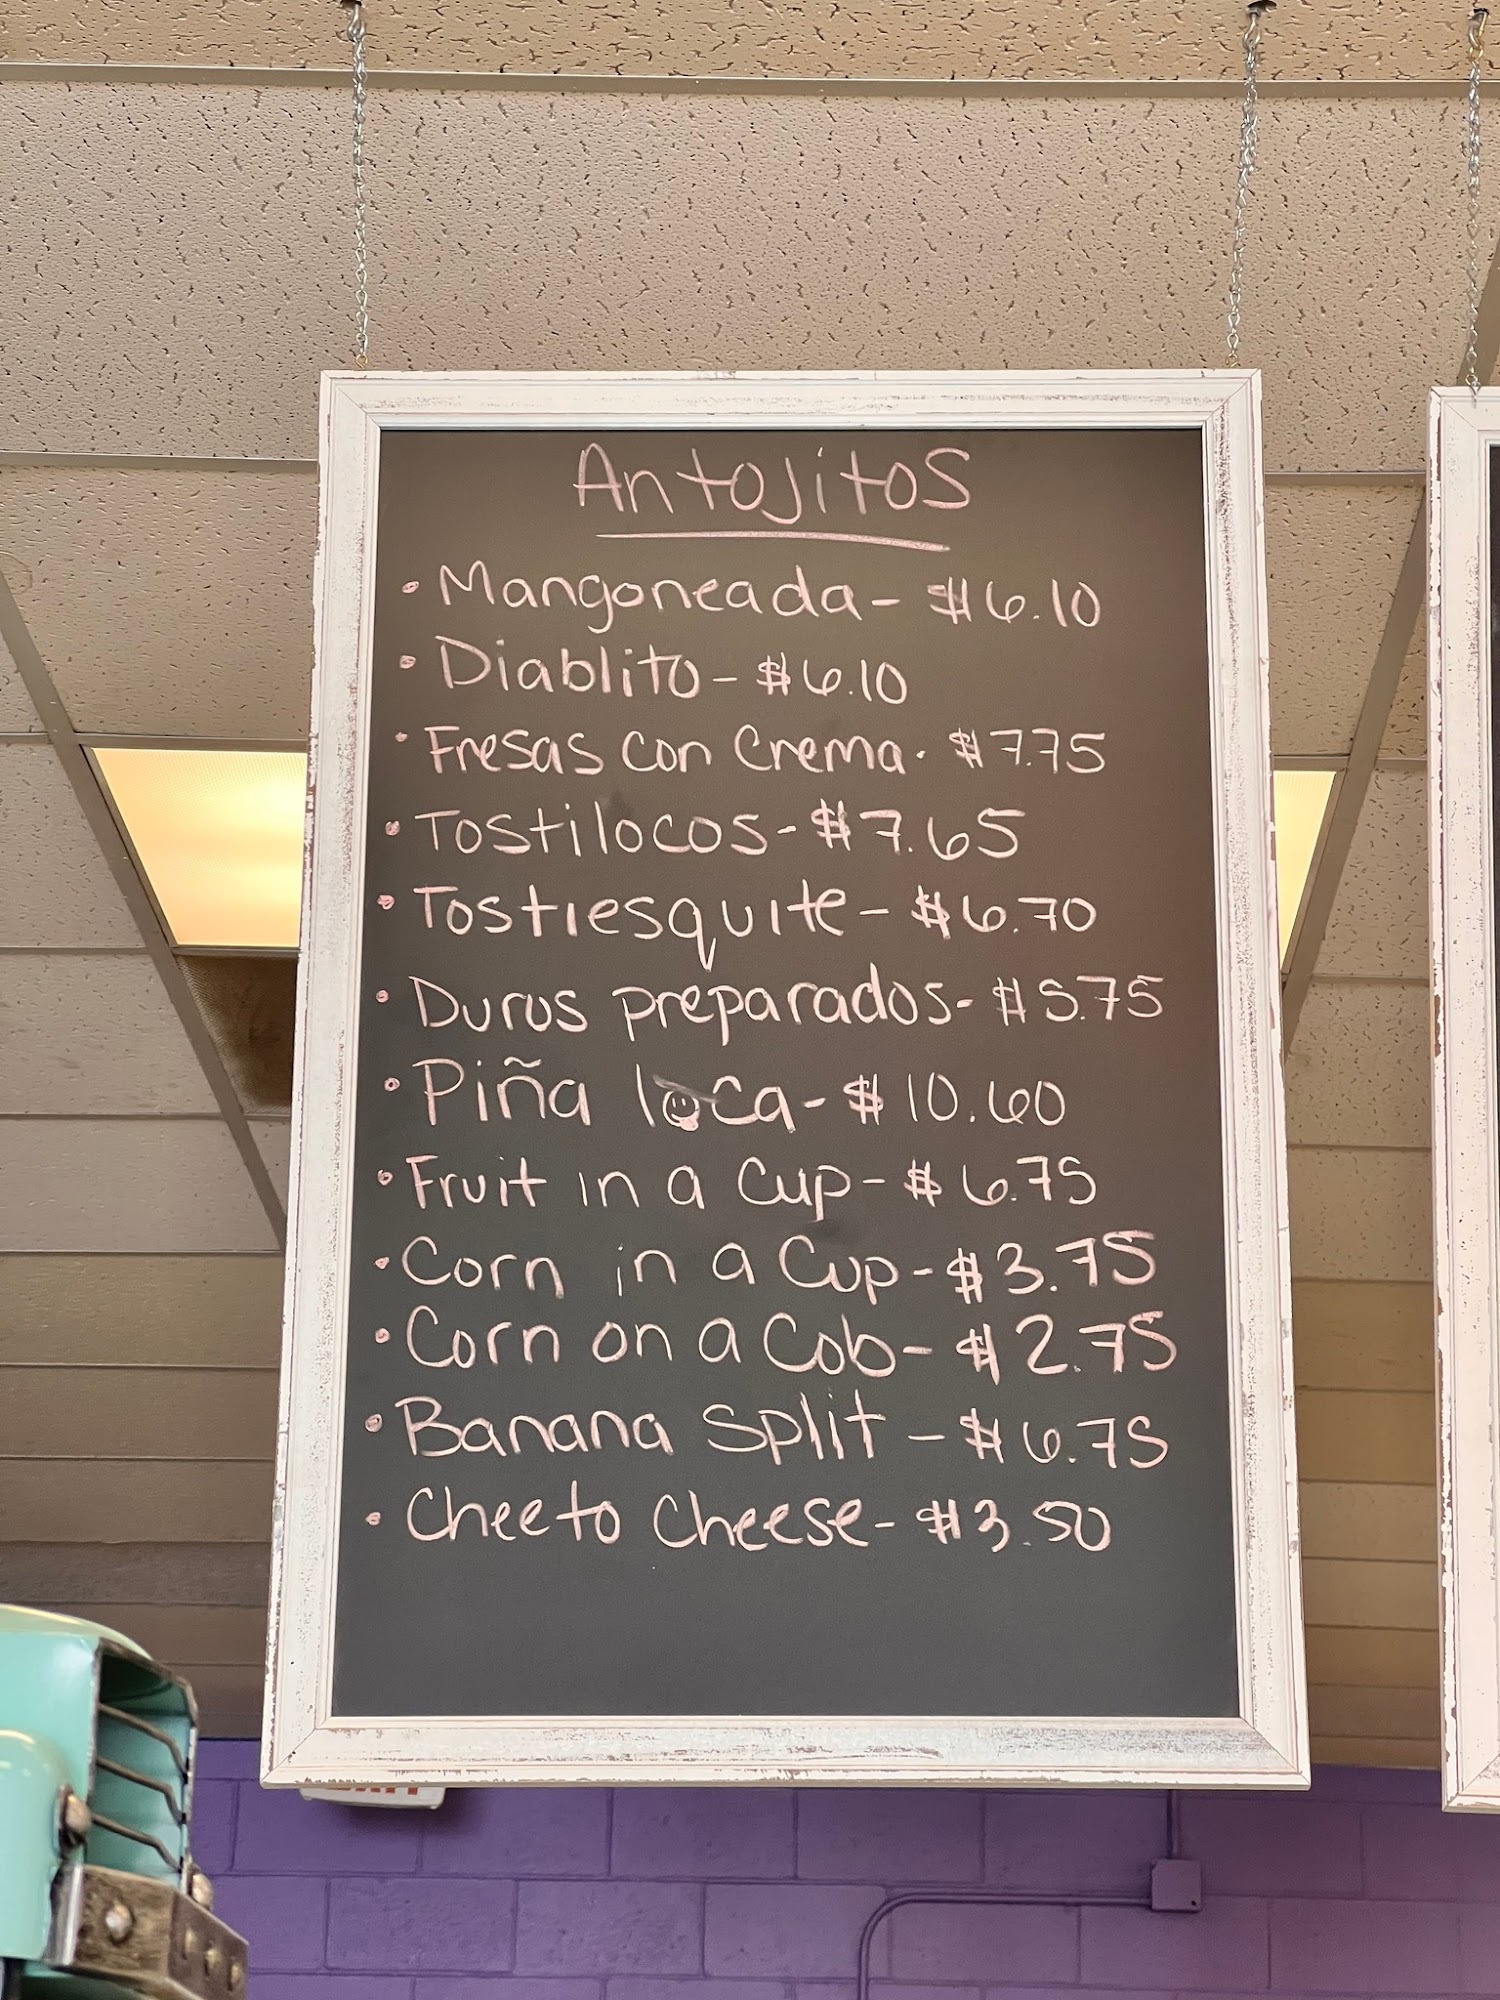 Antojitos
• Mangoneada - $6.10
• Diablito - $6.10
• Fresas con Crema - $7.75
• Tostilocos - $7.65
• Tostiesquite - $6.70
• Duros preparados - $5.75
• Piña loca - $10.60
• Fruit in a Cup - $6.75
• Corn in a Cup - $3.75
• Corn on a Cob - $2.75
• Banana Split - $6.75
• Cheeto Cheese - $3.50